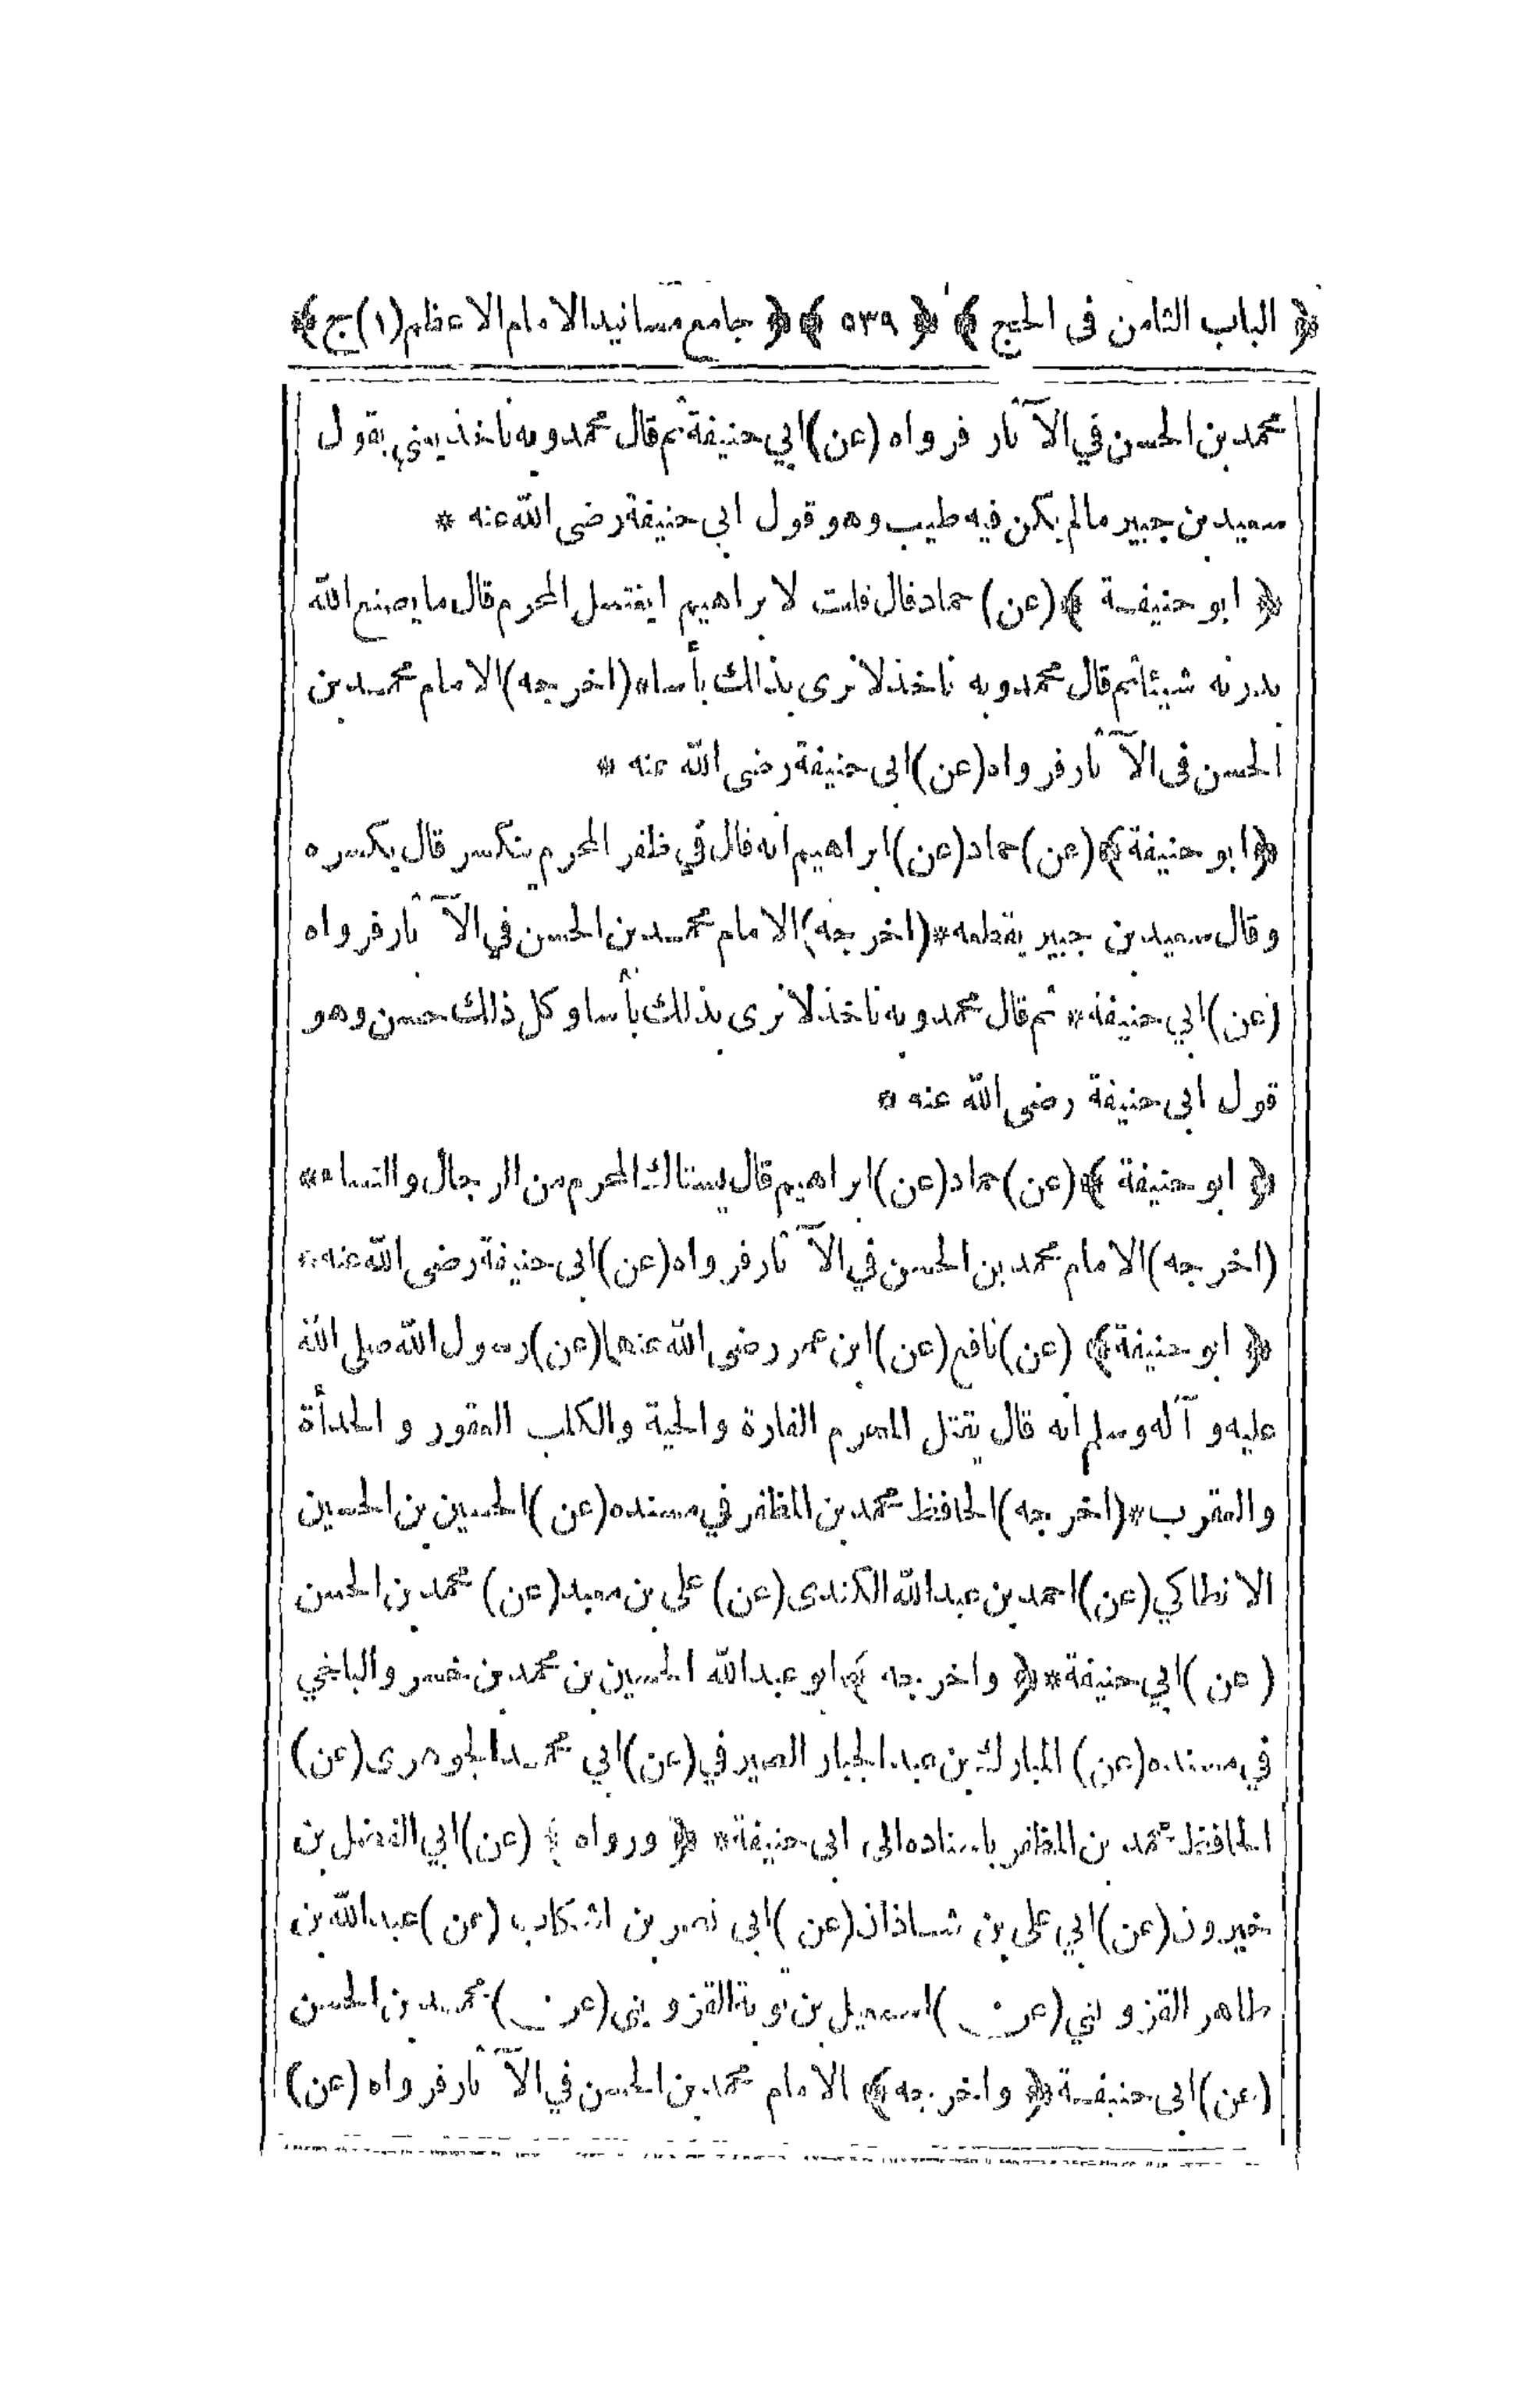 ﴿ الباب الثامن فى الحج ﴾ ﴿ ٥٣٩ ﴾ ﴿ جامع مسانيد الامام الاعظم (١) ج ﴾
محمد بن الحسن في الآثار فرواه (عن) ابي حنيفة ثم قال محمد وبه ناخذ يعني بقول
سعيد بن جبير ما لم يكن فيه طيب وهو قول ابى حنيفة رضى الله عنه *
﴿ ابو حنيفة ﴾ (عن) حماد قال قلت لابراهيم ايغتسل المحرم قال ما يصنع الله
بدرنه شيئا ثم قال محمد وبه ناخذ لا نرى بذالك بأسا * (اخرجه) الامام محمد بن
الحسن فى الآثار فرواه (عن) ابى حنيفة رضى الله عنه *
﴿ ابو حنيفة ﴾ (عن) حماد (عن) ابراهيم انه قال في ظفر المحرم ينكسر قال يكسره
وقال سعيد بن جبير يقطعه * (اخرجه) الامام محمد بن الحسن في الآثار فرواه
(عن) ابي حنيفة * ثم قال محمد وبه ناخذ لا نرى بذلك بأسا وكل ذلك حسن وهو
قول ابى حنيفة رضى الله عنه *
﴿ ابو حنيفة ﴾ (عن) حماد (عن) ابراهيم قال يستاك المحرم من الرجال والنساء *
(اخرجه) الامام محمد بن الحسن في الآثار فرواه (عن) ابى حنيفة رضى الله عنه *
﴿ ابو حنيفة ﴾ (عن) نافع (عن) ابن عمر رضى الله عنهما (عن) رسول الله صلى الله
عليه وآله وسلم انه قال يقتل المحرم الفارة والحية والكلب العقور و الحدأة
والعقرب * (اخرجه) الحافظ محمد بن المظفر في مسنده (عن) الحسين بن الحسين
الانطاكي (عن) احمد بن عبد الله الكندى (عن) على بن معبد (عن) محمد بن الحسن
(عن) ابي حنيفة * ﴿ واخرجه ﴾ ابو عبد الله الحسين بن محمد بن خسرو البلخي
في مسنده (عن) المبارك بن عبد الجبار الصيرفي (عن) ابي محمد الجوهرى (عن)
الحافظ محمد بن المظفر باسناده الى ابى حنيفة * ﴿ ورواه ﴾ (عن) ابي الفضل بن
خيرون (عن) ابي على بن شاذان (عن) ابى نصر بن اشكاب (عن) عبد الله بن
طاهر القزوينى (عن) اسمعيل بن توبة القزوينى (عن) محمد بن الحسن
(عن) ابى حنيفة ﴿ واخرجه ﴾ الامام محمد بن الحسن في الآثار فرواه (عن)